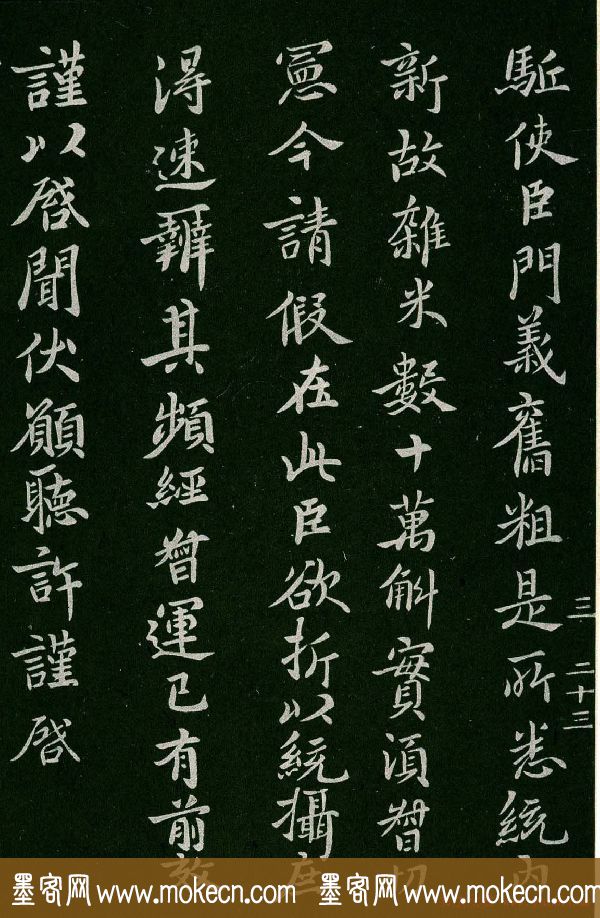 駈使臣門義舊粗是所悉統內
新故雜米數十萬斛實須督切
憲今請假在此臣欲折以統攝
得速辦其頻經督運已有前效
謹以啓聞伏願聽許謹啓
三 二十三
墨客网 www.mokecn.com 墨客网 www.mokecn.com